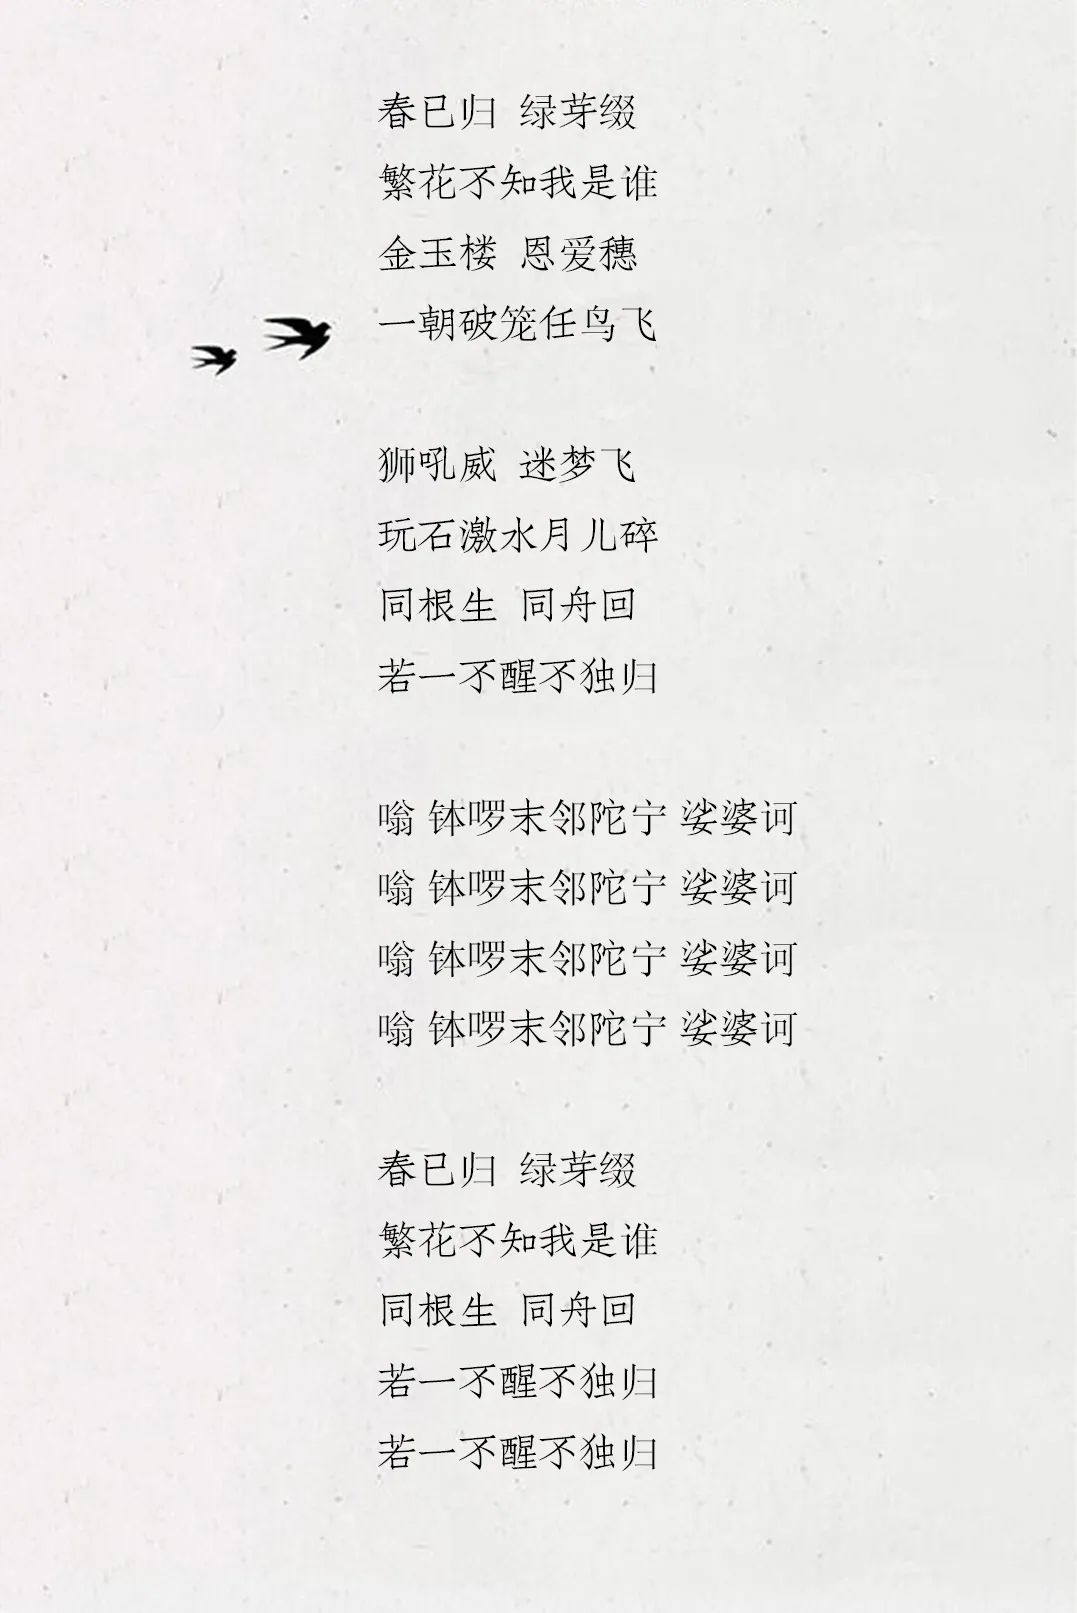 春已归 绿芽缀
繁花不知我是谁
金玉楼 恩爱穗
一朝破笼任鸟飞
狮吼威 迷梦飞
玩石激水月儿碎
同根生 同舟回
若一不醒不独归
嗡 钵啰末邻陀宁 娑婆诃
嗡 钵啰末邻陀宁 娑婆诃
嗡 钵啰末邻陀宁 娑婆诃
嗡 钵啰末邻陀宁 娑婆诃
春已归 绿芽缀
繁花不知我是谁
同根生 同舟回
若一不醒不独归
若一不醒不独归